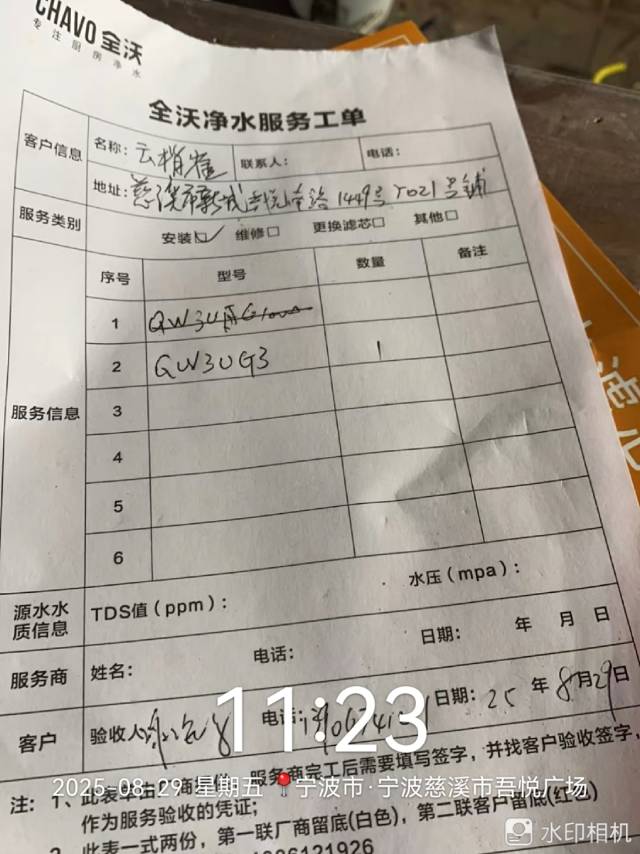 CHAVO 全沃
专注厨房净水
全沃净水服务工单
客户信息 名称: 云梢雀 联系人: 电话:
地址: 慈溪市新城吾悦 路1449号 1021号铺
服务类别 安装☑ 维修□ 更换滤芯□ 其他□
服务信息 序号 型号 数量 备注
1 QW3U
2 QW3UG3 1
3
4
5
6
源水水质信息 TDS值(ppm): 水压(mpa):
服务商 姓名: 电话: 日期: 年 月 日
客户 验收人 电话: 日期: 25 年 8月29日
11:23
2025-08-29 星期五 宁波市·宁波慈溪市吾悦广场
注: 1、此表单由 商 服务商完工后需要填写签字,并找客户验收签字,
作为服务验收的凭证;
此表一式两份,第一联厂商留底(白色),第二联客户留底(红色)
水印相机